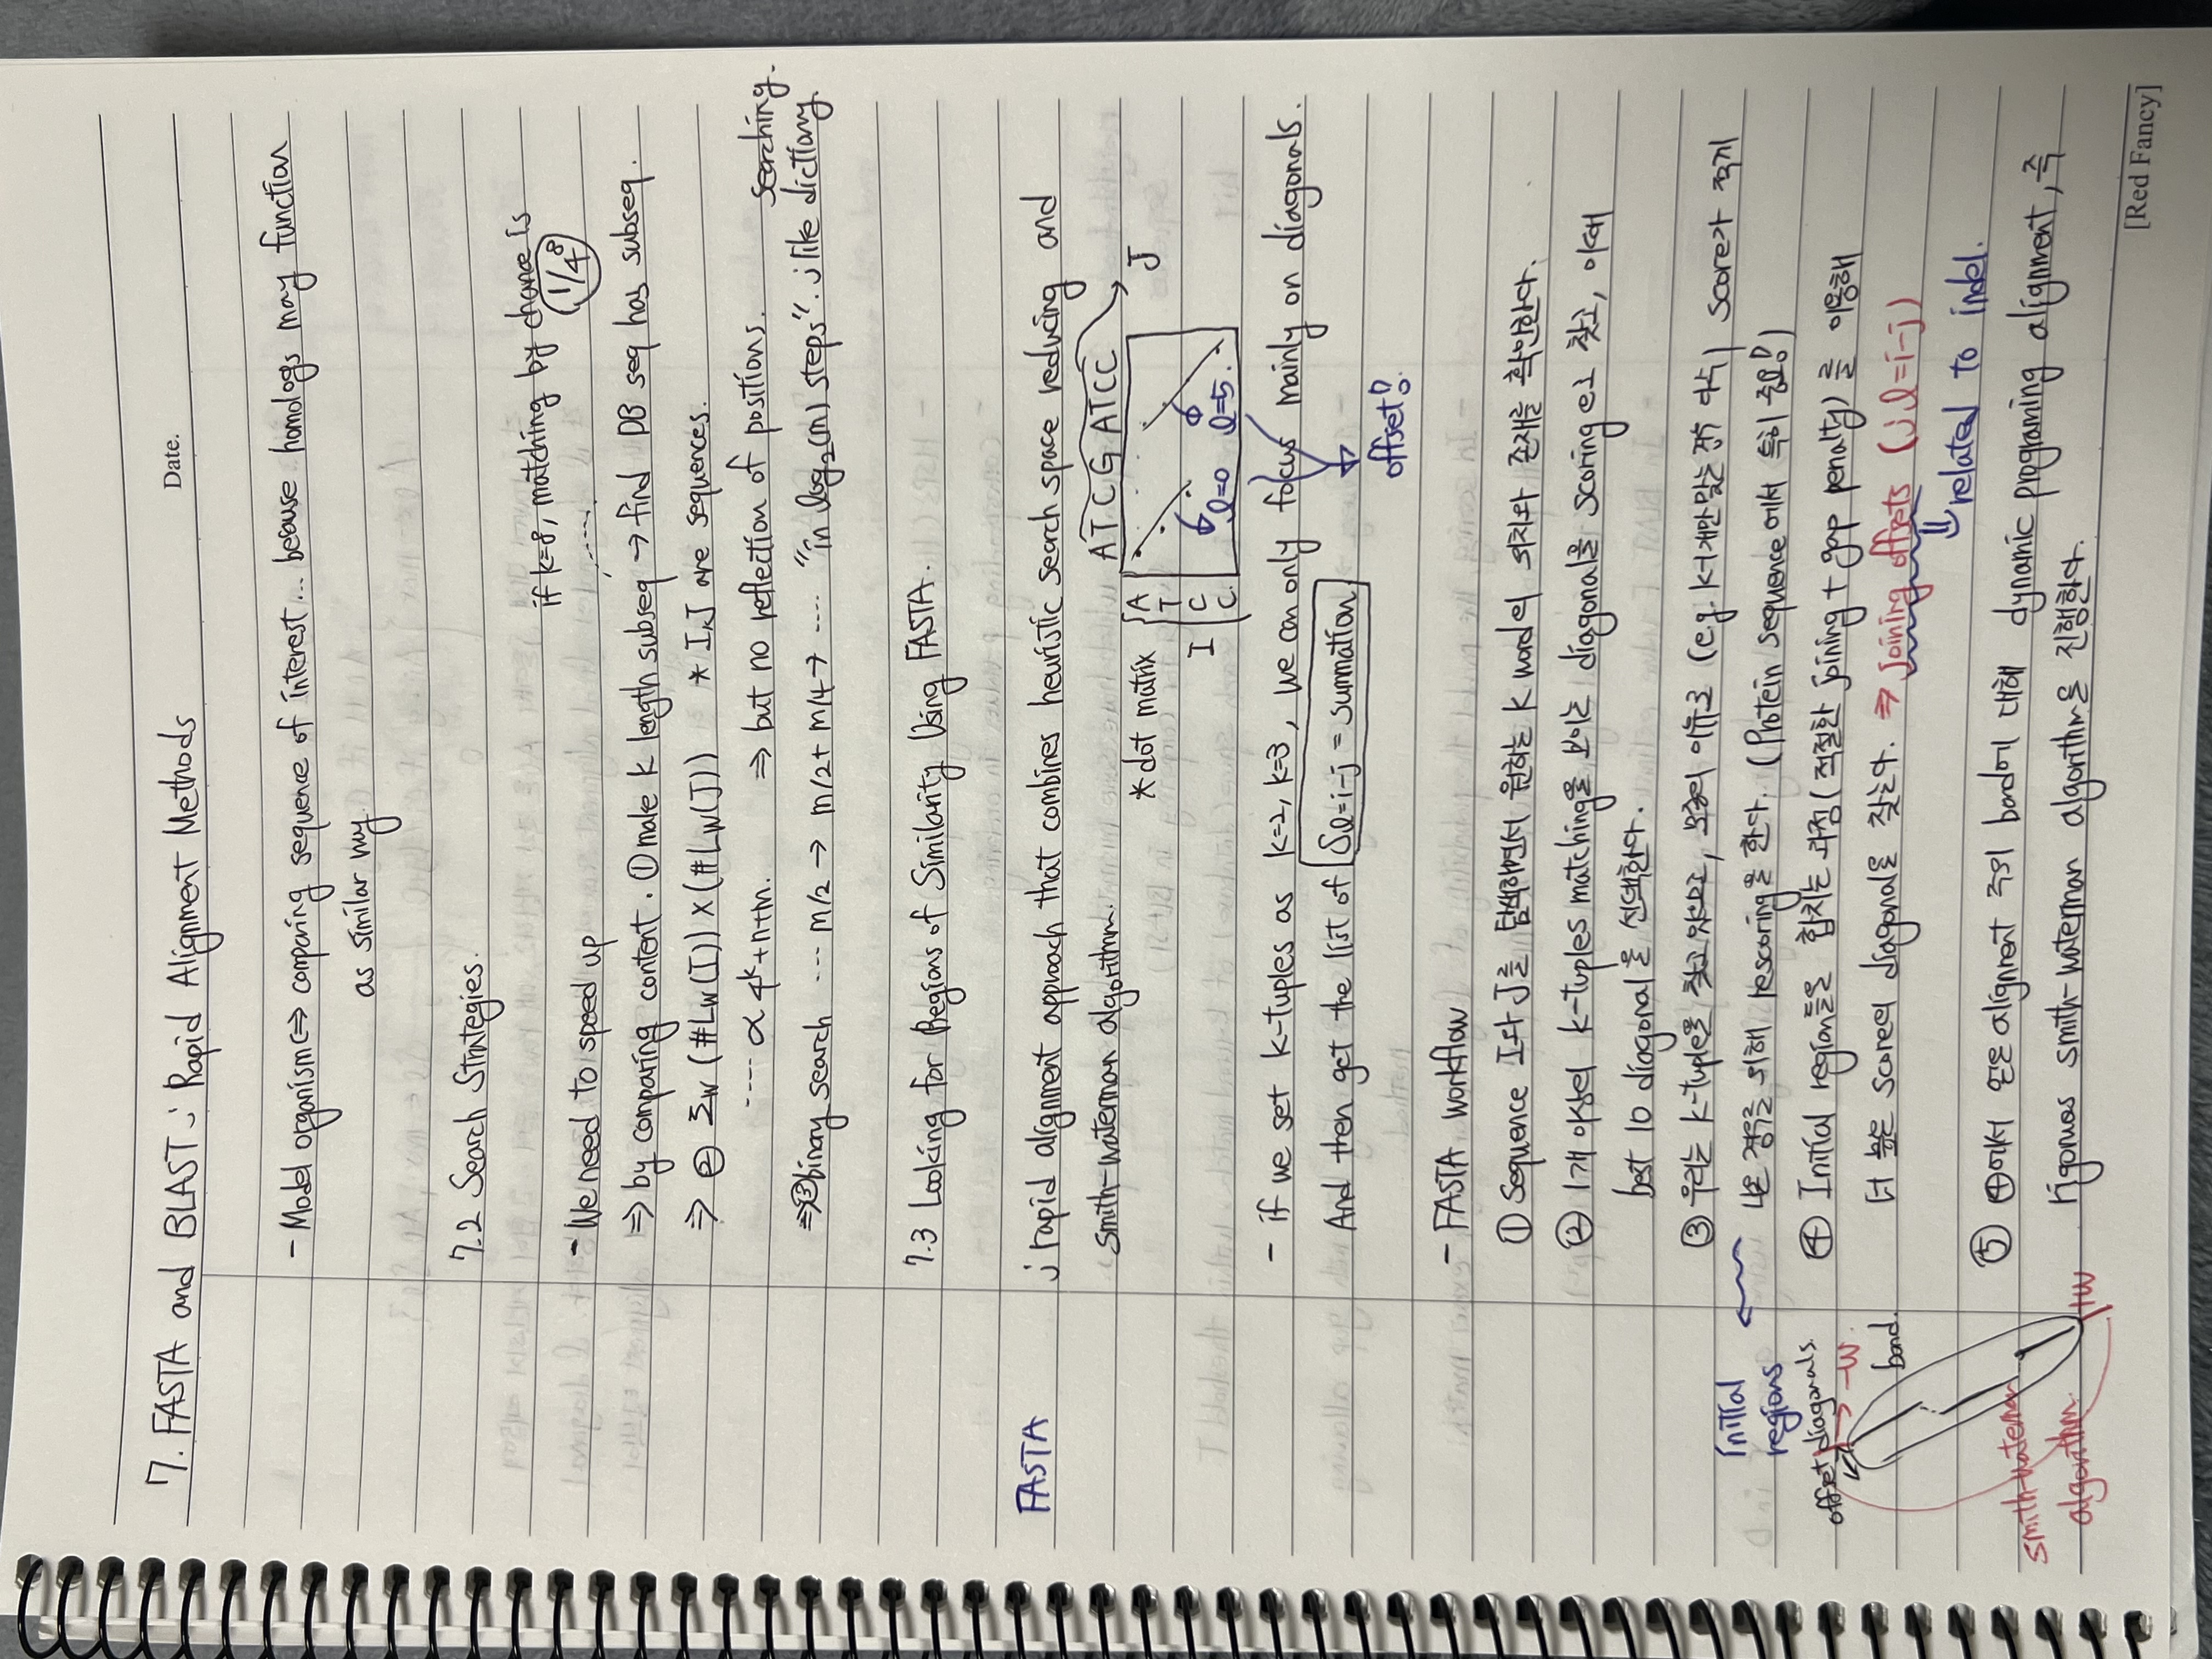 Date.
7. FASTA and BLAST : Rapid Alignment Methods
- Model organism ⇔ comparing sequence of interest ... because homologs may function
as similar way.
7.2 Search Strategies.
- We need to speed up
if k=8, matching by chance is
(1/4⁸)
⇒ by comparing content. ① make k length subseq → find DB seq has subseq.
⇒ ② Σw (#Lw(I)) × (#Lw(J)) * I,J are sequences.
.... ∝ 4ᵏ+n+m. ⇒ but no reflection of positions.
⇒③ binary search .... m/2 → m/2+m/4 → .... "in log₂(m) steps". ; like dictionary
searching.
7.3 Looking for Regions of Similarity Using FASTA.
FASTA
; rapid alignment approach that combines heuristic search space reducing and
Smith-Waterman algorithm.
* dot matrix
ATCGATCC
J
I
A
T
C
C
l=0
l=5.
- if we set k-tuples as k=2, k=3, we can only focus mainly on diagonals.
offset!
And then get the list of Sl=i-j = summation
- FASTA workflow
① Sequence I와 J를 탐색하면서 원하는 k word의 위치와 존재를 확인한다.
② 1개 이상의 k-tuples matching을 보이는 diagonal을 scoring 하고 찾고, 이에
best 10 diagonal을 선택한다.
③ 우리는 k-tuple을 찾고 있으므로, 모종의 이유로 (e.g. k-1개만 맞는 경우 다수) score가 적게
나온 경우를 위해 rescoring을 한다. (Protein sequence에서 특히 중요!)
Initial
regions
④ Initial region들을 합치는 과정 (적절한 joining + gap penalty)를 이용해
더 높은 score의 diagonal을 찾는다. ⇒ Joining offsets (; l=i-j)
related to indel.
offset diagonals.
-W
band.
+W
Smith-Waterman
algorithm
⑤ ④에서 얻은 alignment 주위 band에 대해 dynamic programing alignment, 즉
rigorous smith-waterman algorithm을 진행한다.
[Red Fancy]